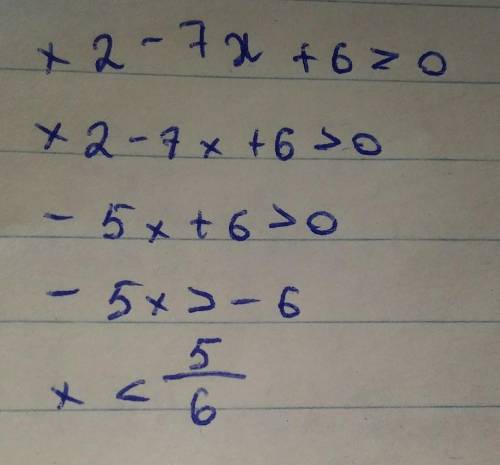 x2 - 7x + 6 ≥ 0
x2 - 7x + 6 > 0
- 5x + 6 > 0
- 5x > - 6
x < 5/6